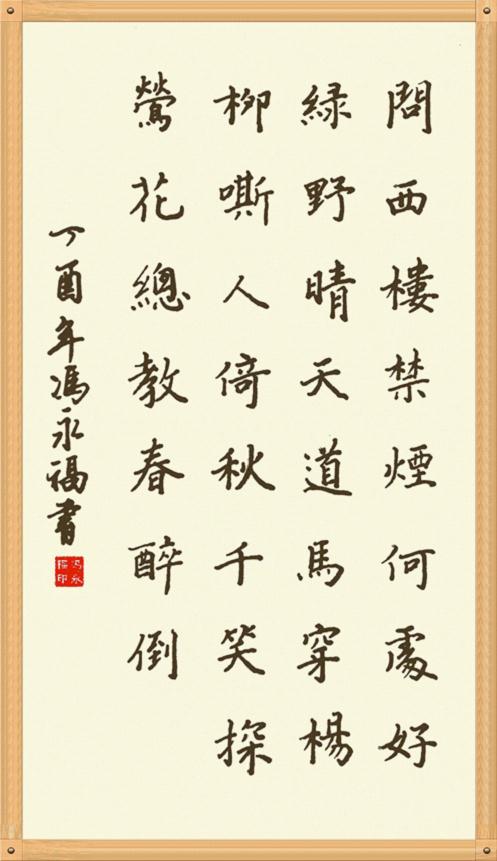 問西樓禁煙何處好
綠野晴天道馬穿楊
柳嘶人倚秋千笑探
鶯花總教春醉倒
丁酉年馮永福書
馮永福印